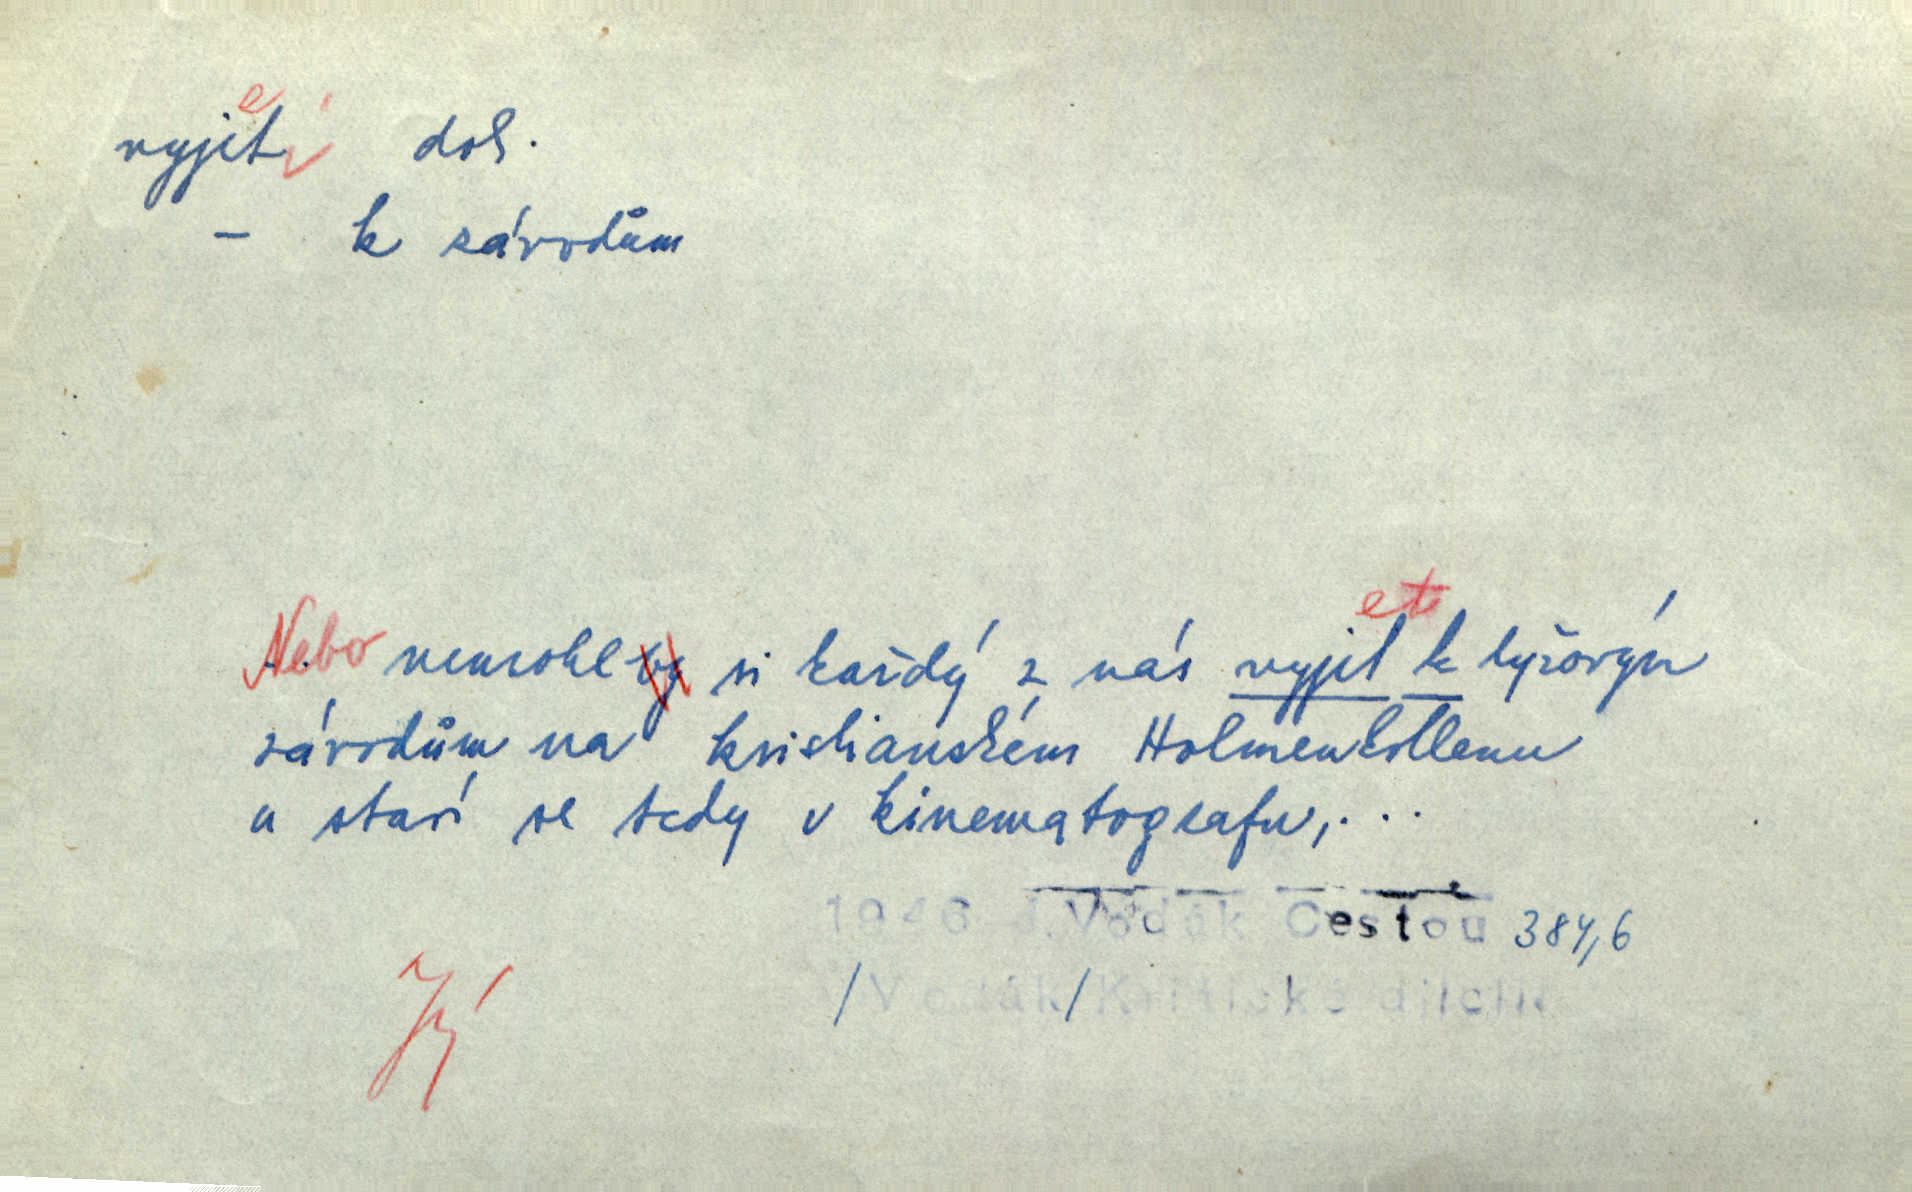 vyjeti dok.
– k závodům
Nebo nemohl si každý z nás vyjet k lyžovým
závodům na kristianském Holmenkollenu
a staví se tedy v kinematografu, . . .
1946 J.Vodák Cestou 384,6
/Vodák/Kritické dílo